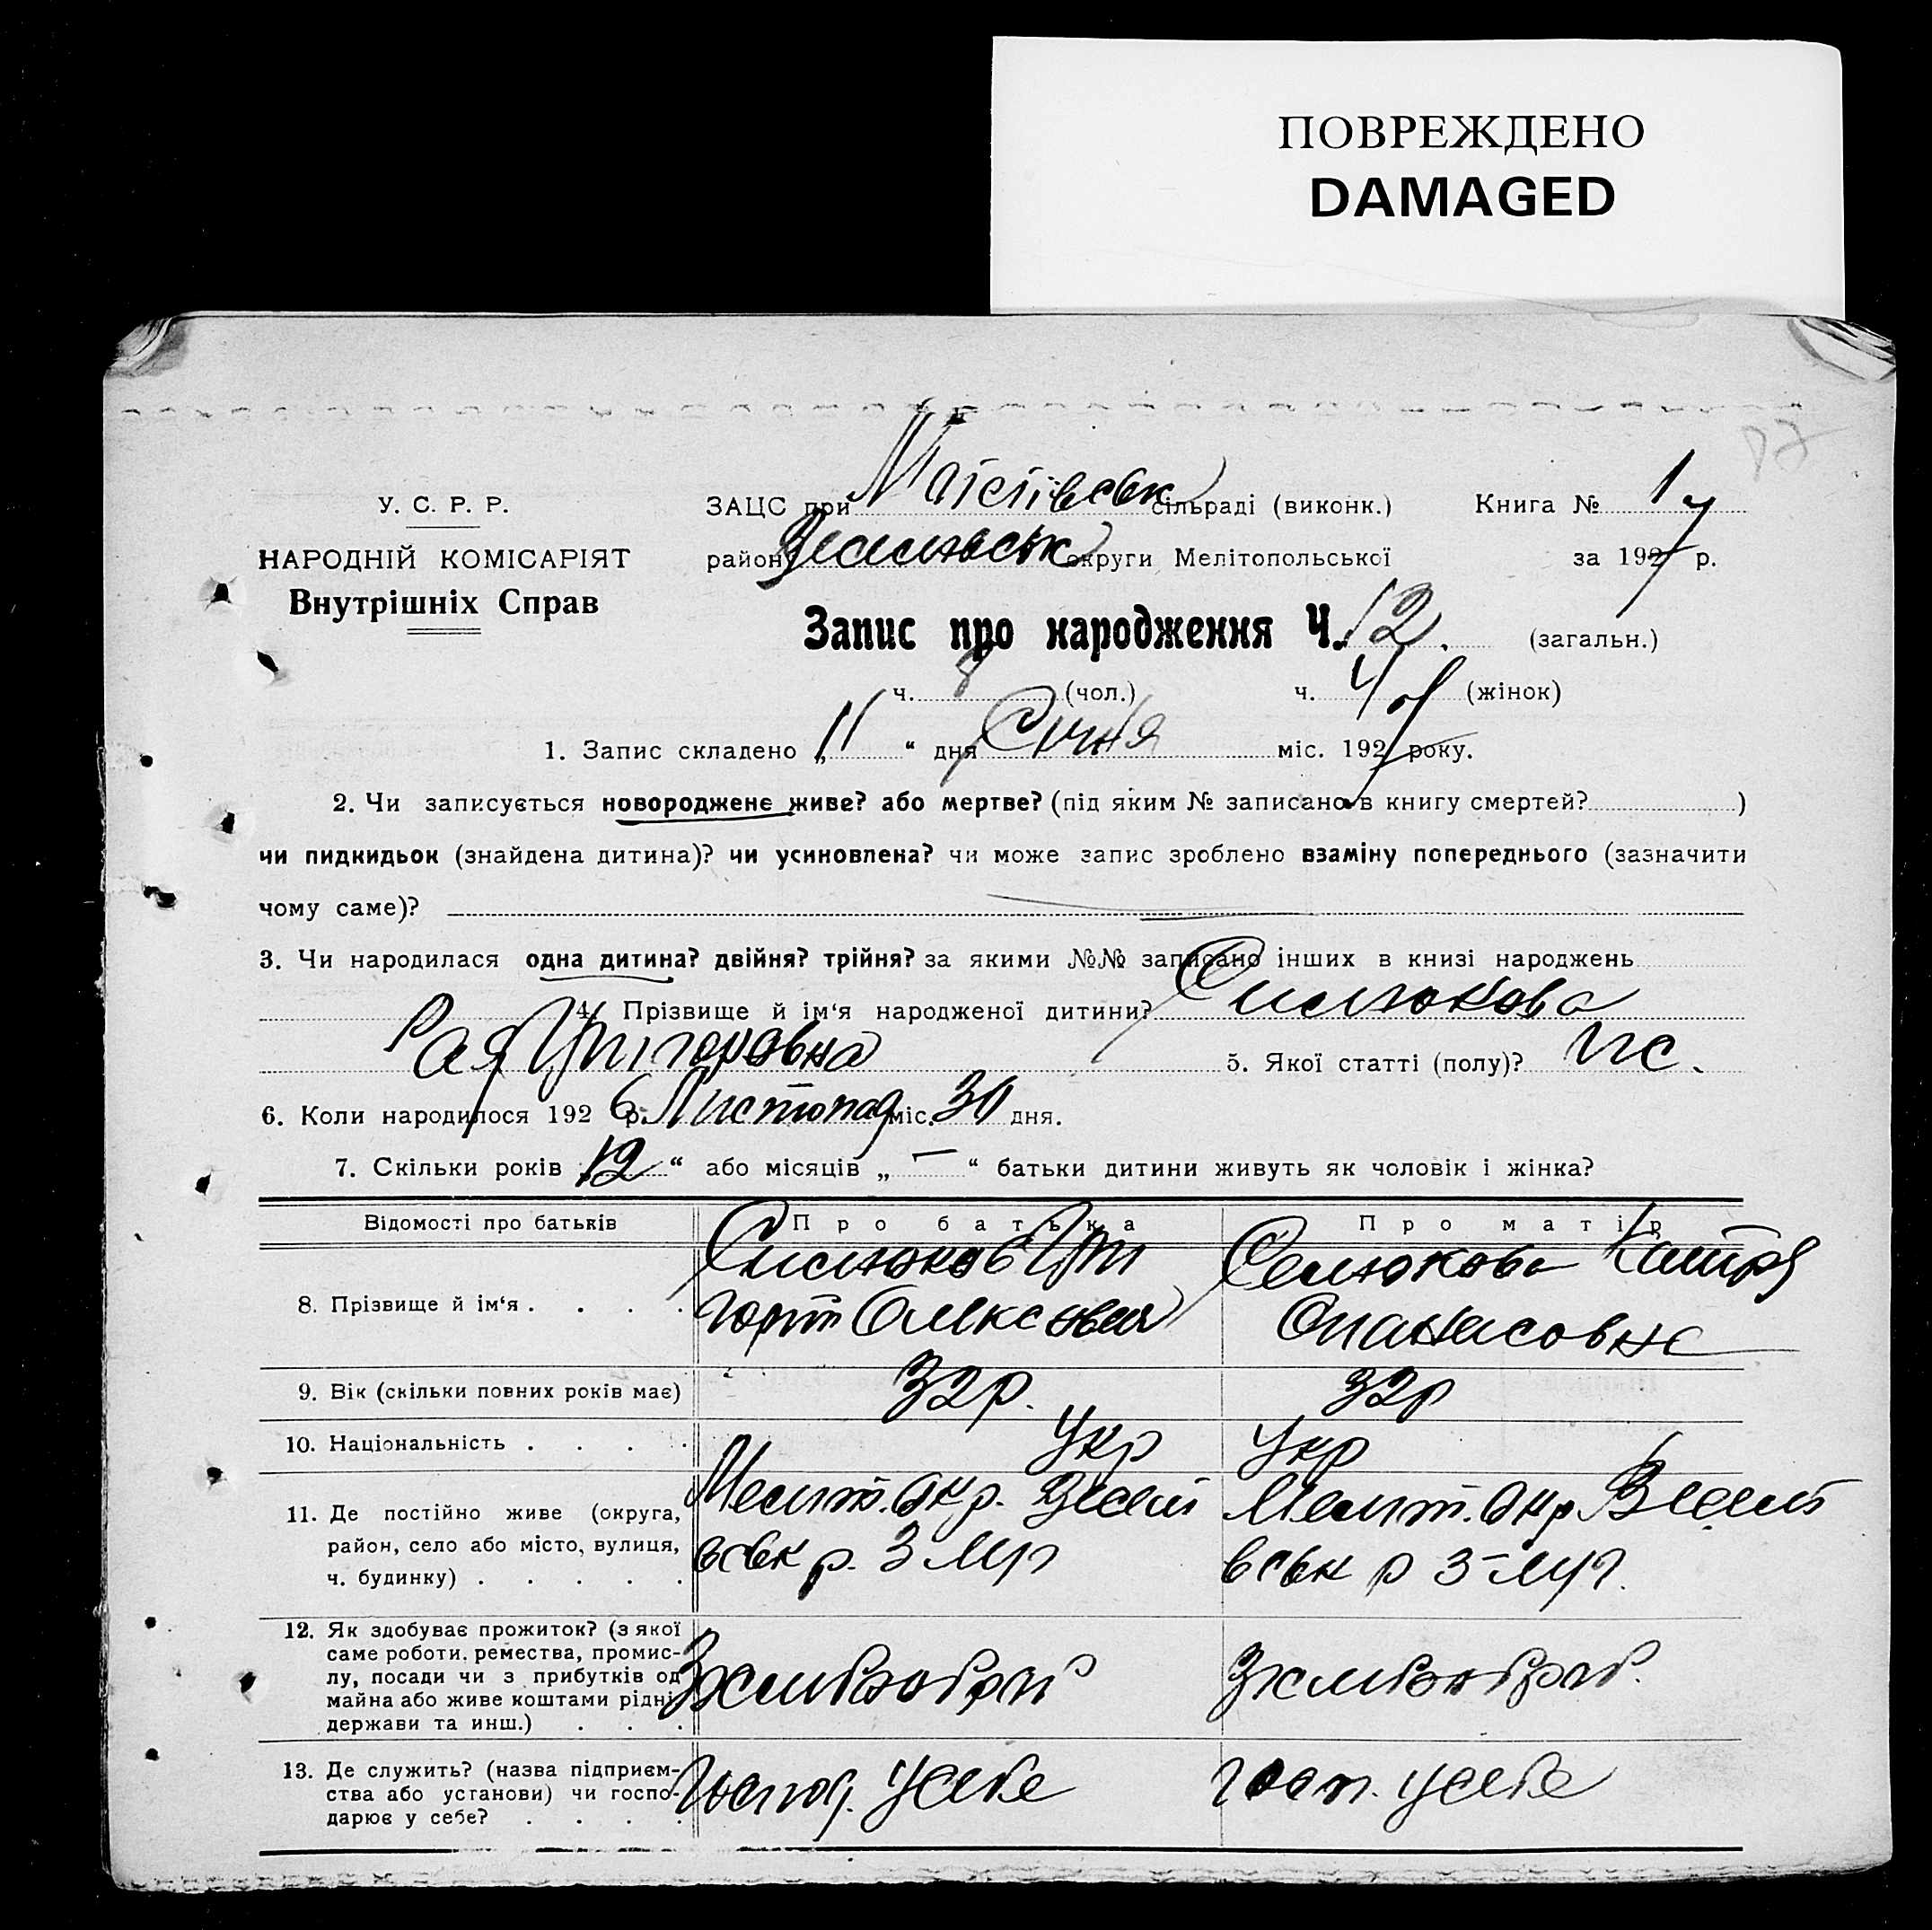 ПОВРЕЖДЕНО
DAMAGED
У. С. Р. Р.
НАРОДНІЙ КОМІСАРІЯТ
Внутрішніх Справ
ЗАЦС при сільраді (виконк.) Книга № 1
район округи Мелітопольської за 1927 р.
Запис про народження Ч. 12. (загальн.)
ч. 8 (чол.) ч. 4 (жінок)
1. Запис складено „ 11 “ дня Січня міс. 1927 року.
2. Чи записується новороджене живе? або мертве? (під яким № записано в книгу смертей? )
чи пидкидьок (знайдена дитина)? чи усиновлена? чи може запис зроблено взаміну попереднього (зазначити
чому саме)?
3. Чи народилася одна дитина? двійня? трійня? за якими №№ записано інших в книзі народжень
4. Прізвище й ім‘я народженої дитини?
Рая Григоровна 5. Якої статті (полу)? жс.
6. Коли народилося 192 6 р. Листопад міс. 30 дня.
7. Скільки років „ 12 “ або місяців „ — “ батьки дитини живуть як чоловік і жінка?
Відомості про батьків Про батька Про матір
8. Прізвище й ім‘я . . . .
Опанасовна
9. Вік (скільки повних років має) 32 р. 32 р
10. Національність . . . . Укр Укр
11. Де постійно живе (округа, Меліт. окр. Весел Меліт. окр Весел
район, село або місто, вулиця, р. 3 р 3
ч. будинку) . . . . .
12. Як здобуває прожиток? (з якої
саме роботи. ремества, промис-
лу, посади чи з прибутків од
майна або живе коштами рідні,
держави та инш.) . . .
13. Де служить? (назва підприєм-
ства або установи) чи госпо- Господ. у себе Госп. у себе
дарює у себе? . . . .